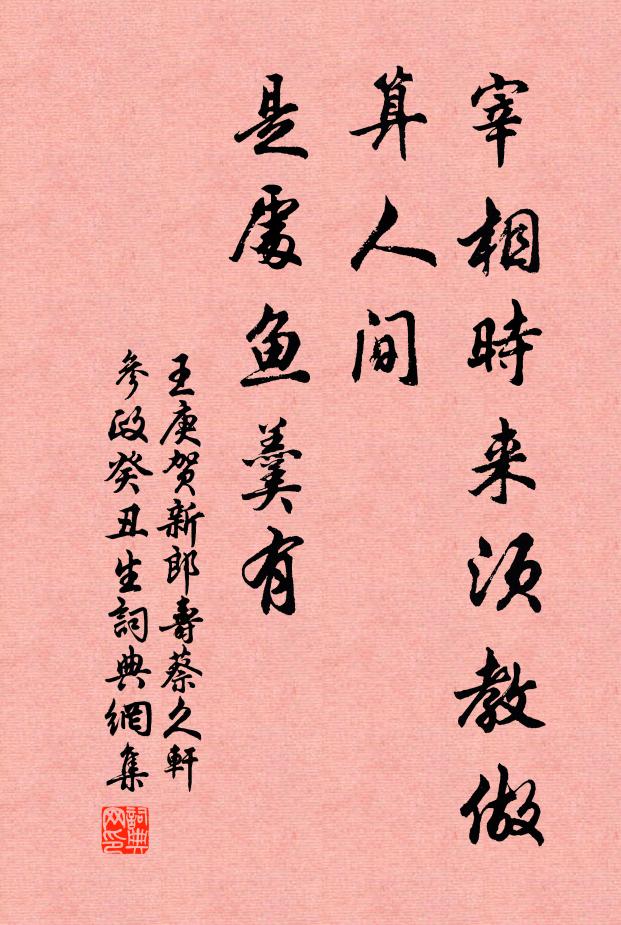 宰相時来须教做
算人间
是處鱼羹有
王庚贺新郎壽蔡久軒
參政癸丑生詞典網集
詞典网印